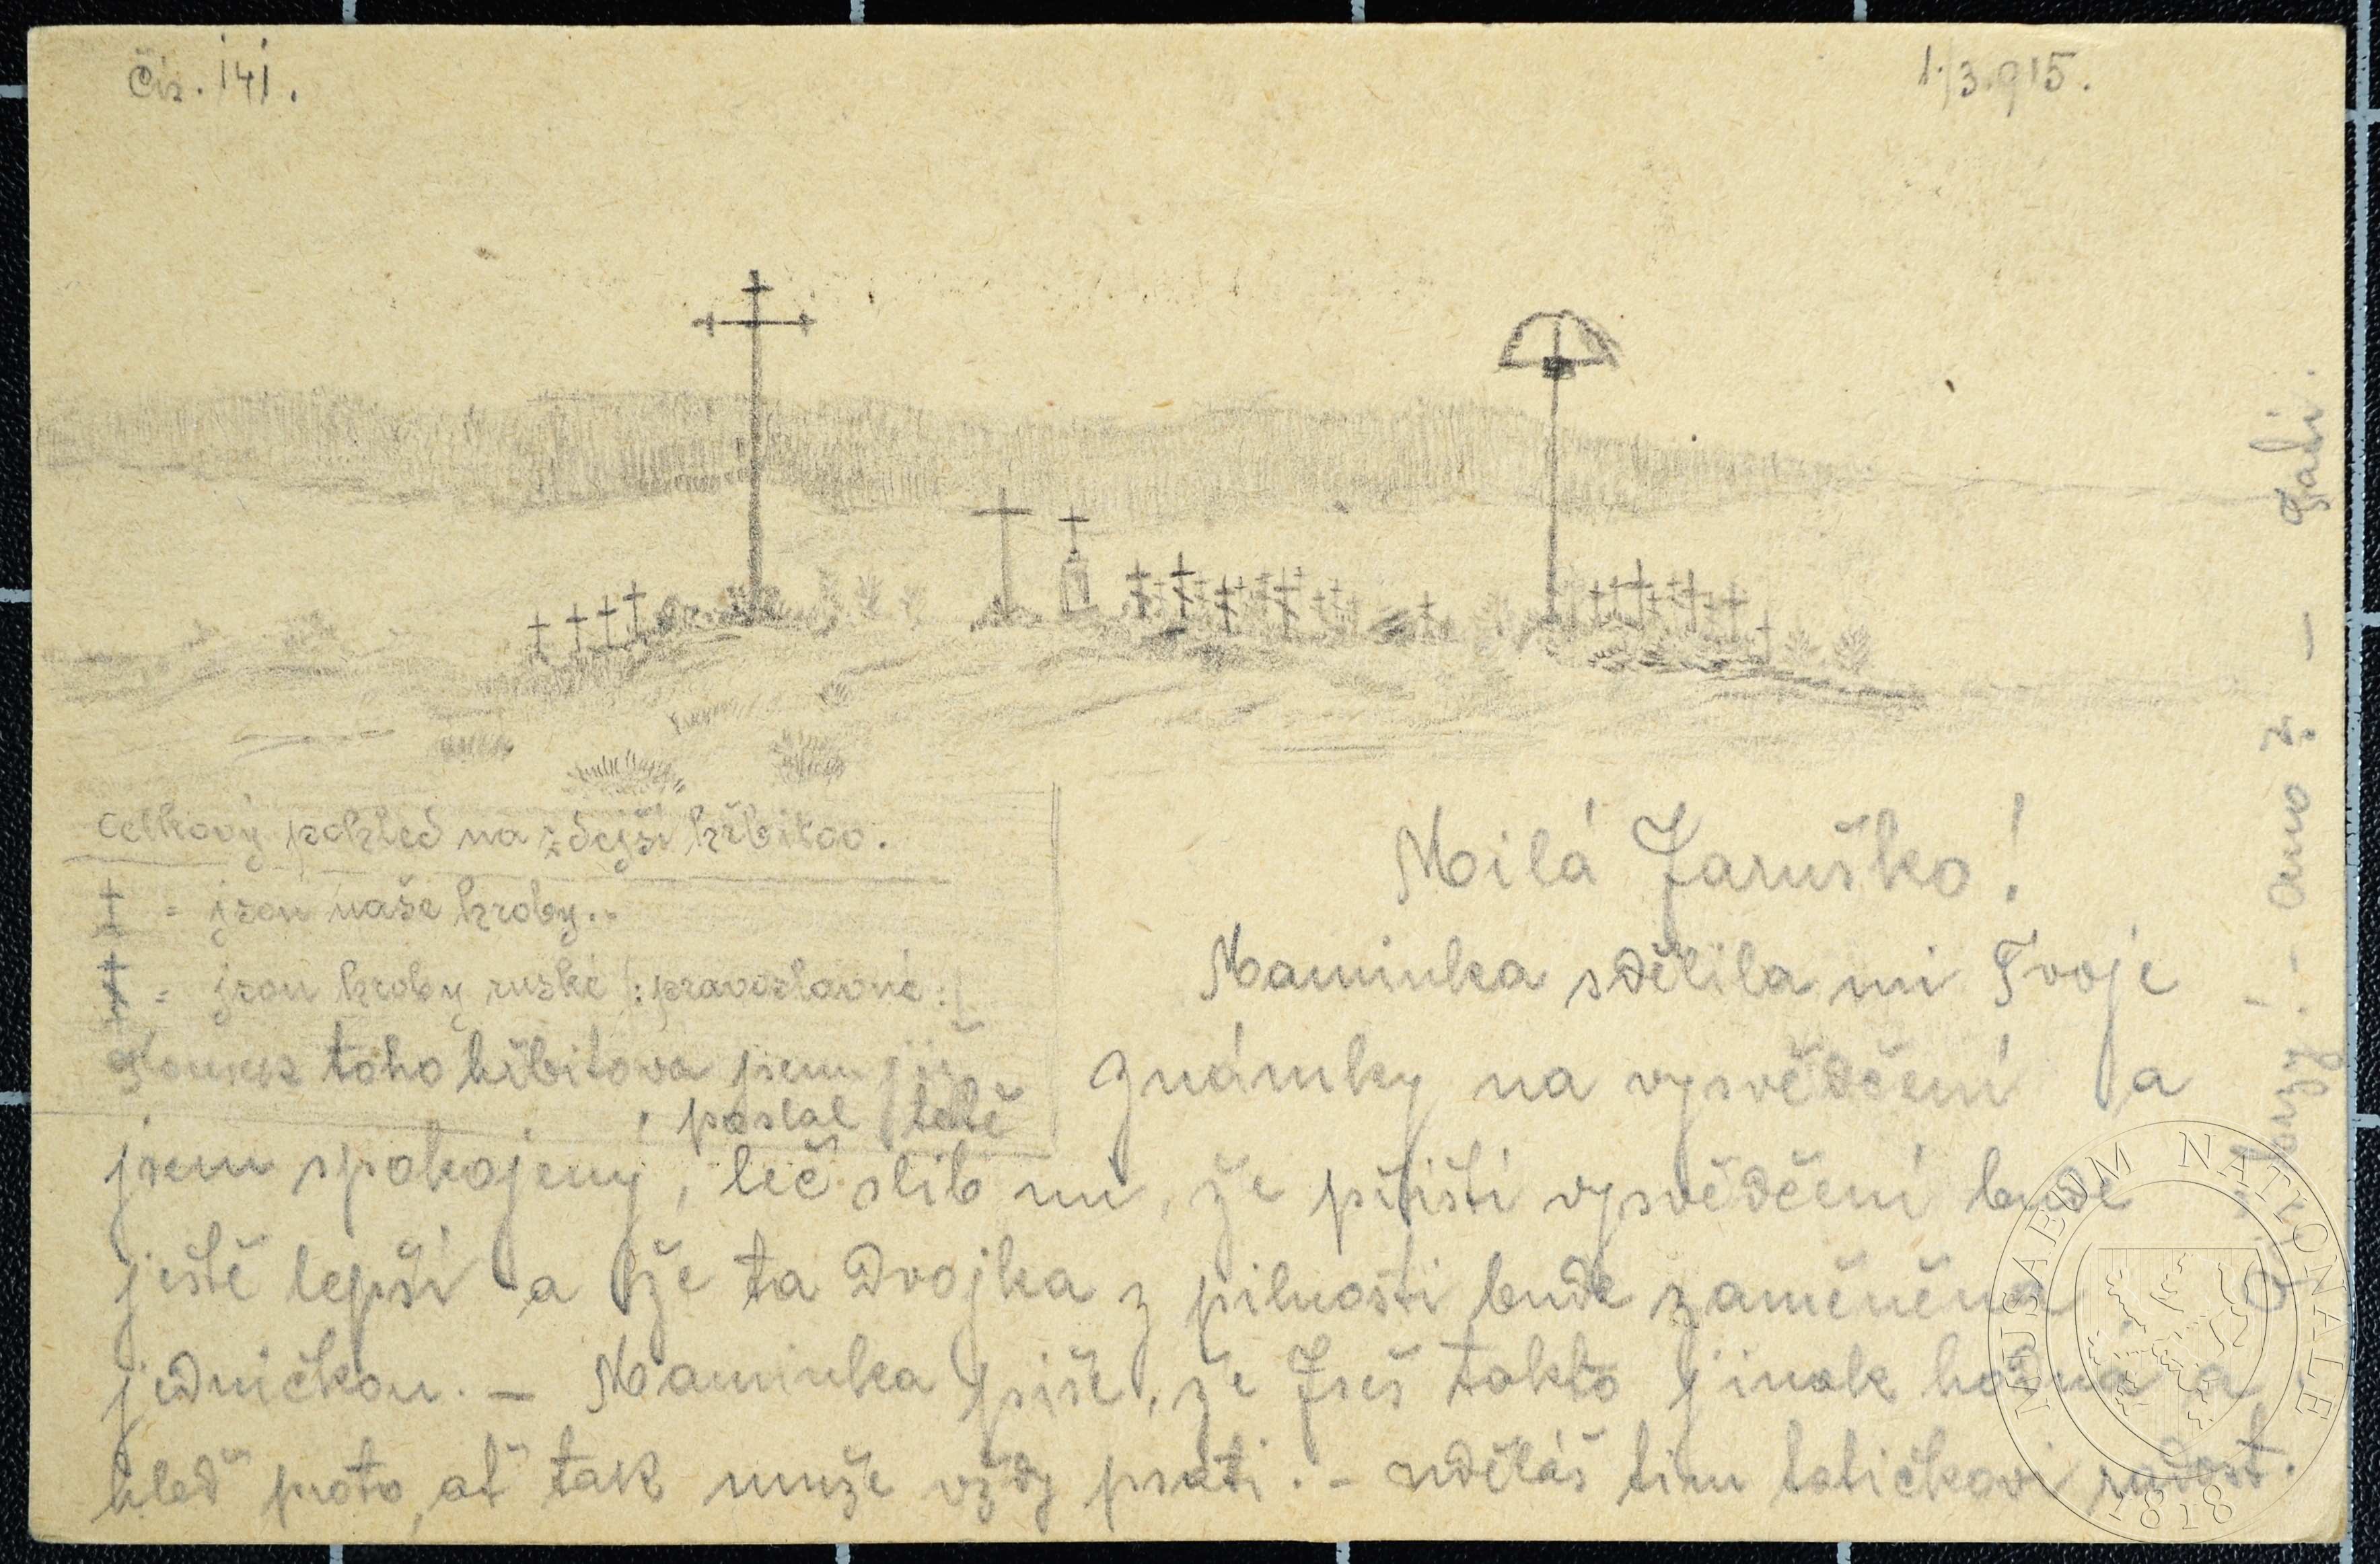 Čís. 141.
1./3.915.
Celkový pohled na zdejší hřbitov.
= jsou naše hroby.
= jsou hroby ruské /: pravoslavné :/
toho hřbitova jsem již
poslal tetě
Milá Jaruško!
Maminka sdělila mi Tvoje
známky na vysvědčení a
jsem spokojený, leč slib mi, že příští vysvědčení bude
ještě lepší a že ta dvojka z pilnosti bude zaměněna
jedničkou. — Maminka píše, že Jseš takto jinak hodná a
hleď proto, ať tak muže vždy psáti. - uděláš tím tatíčkovi radost.
- ano ?. —
MUSAEUM NATIONALE
1818